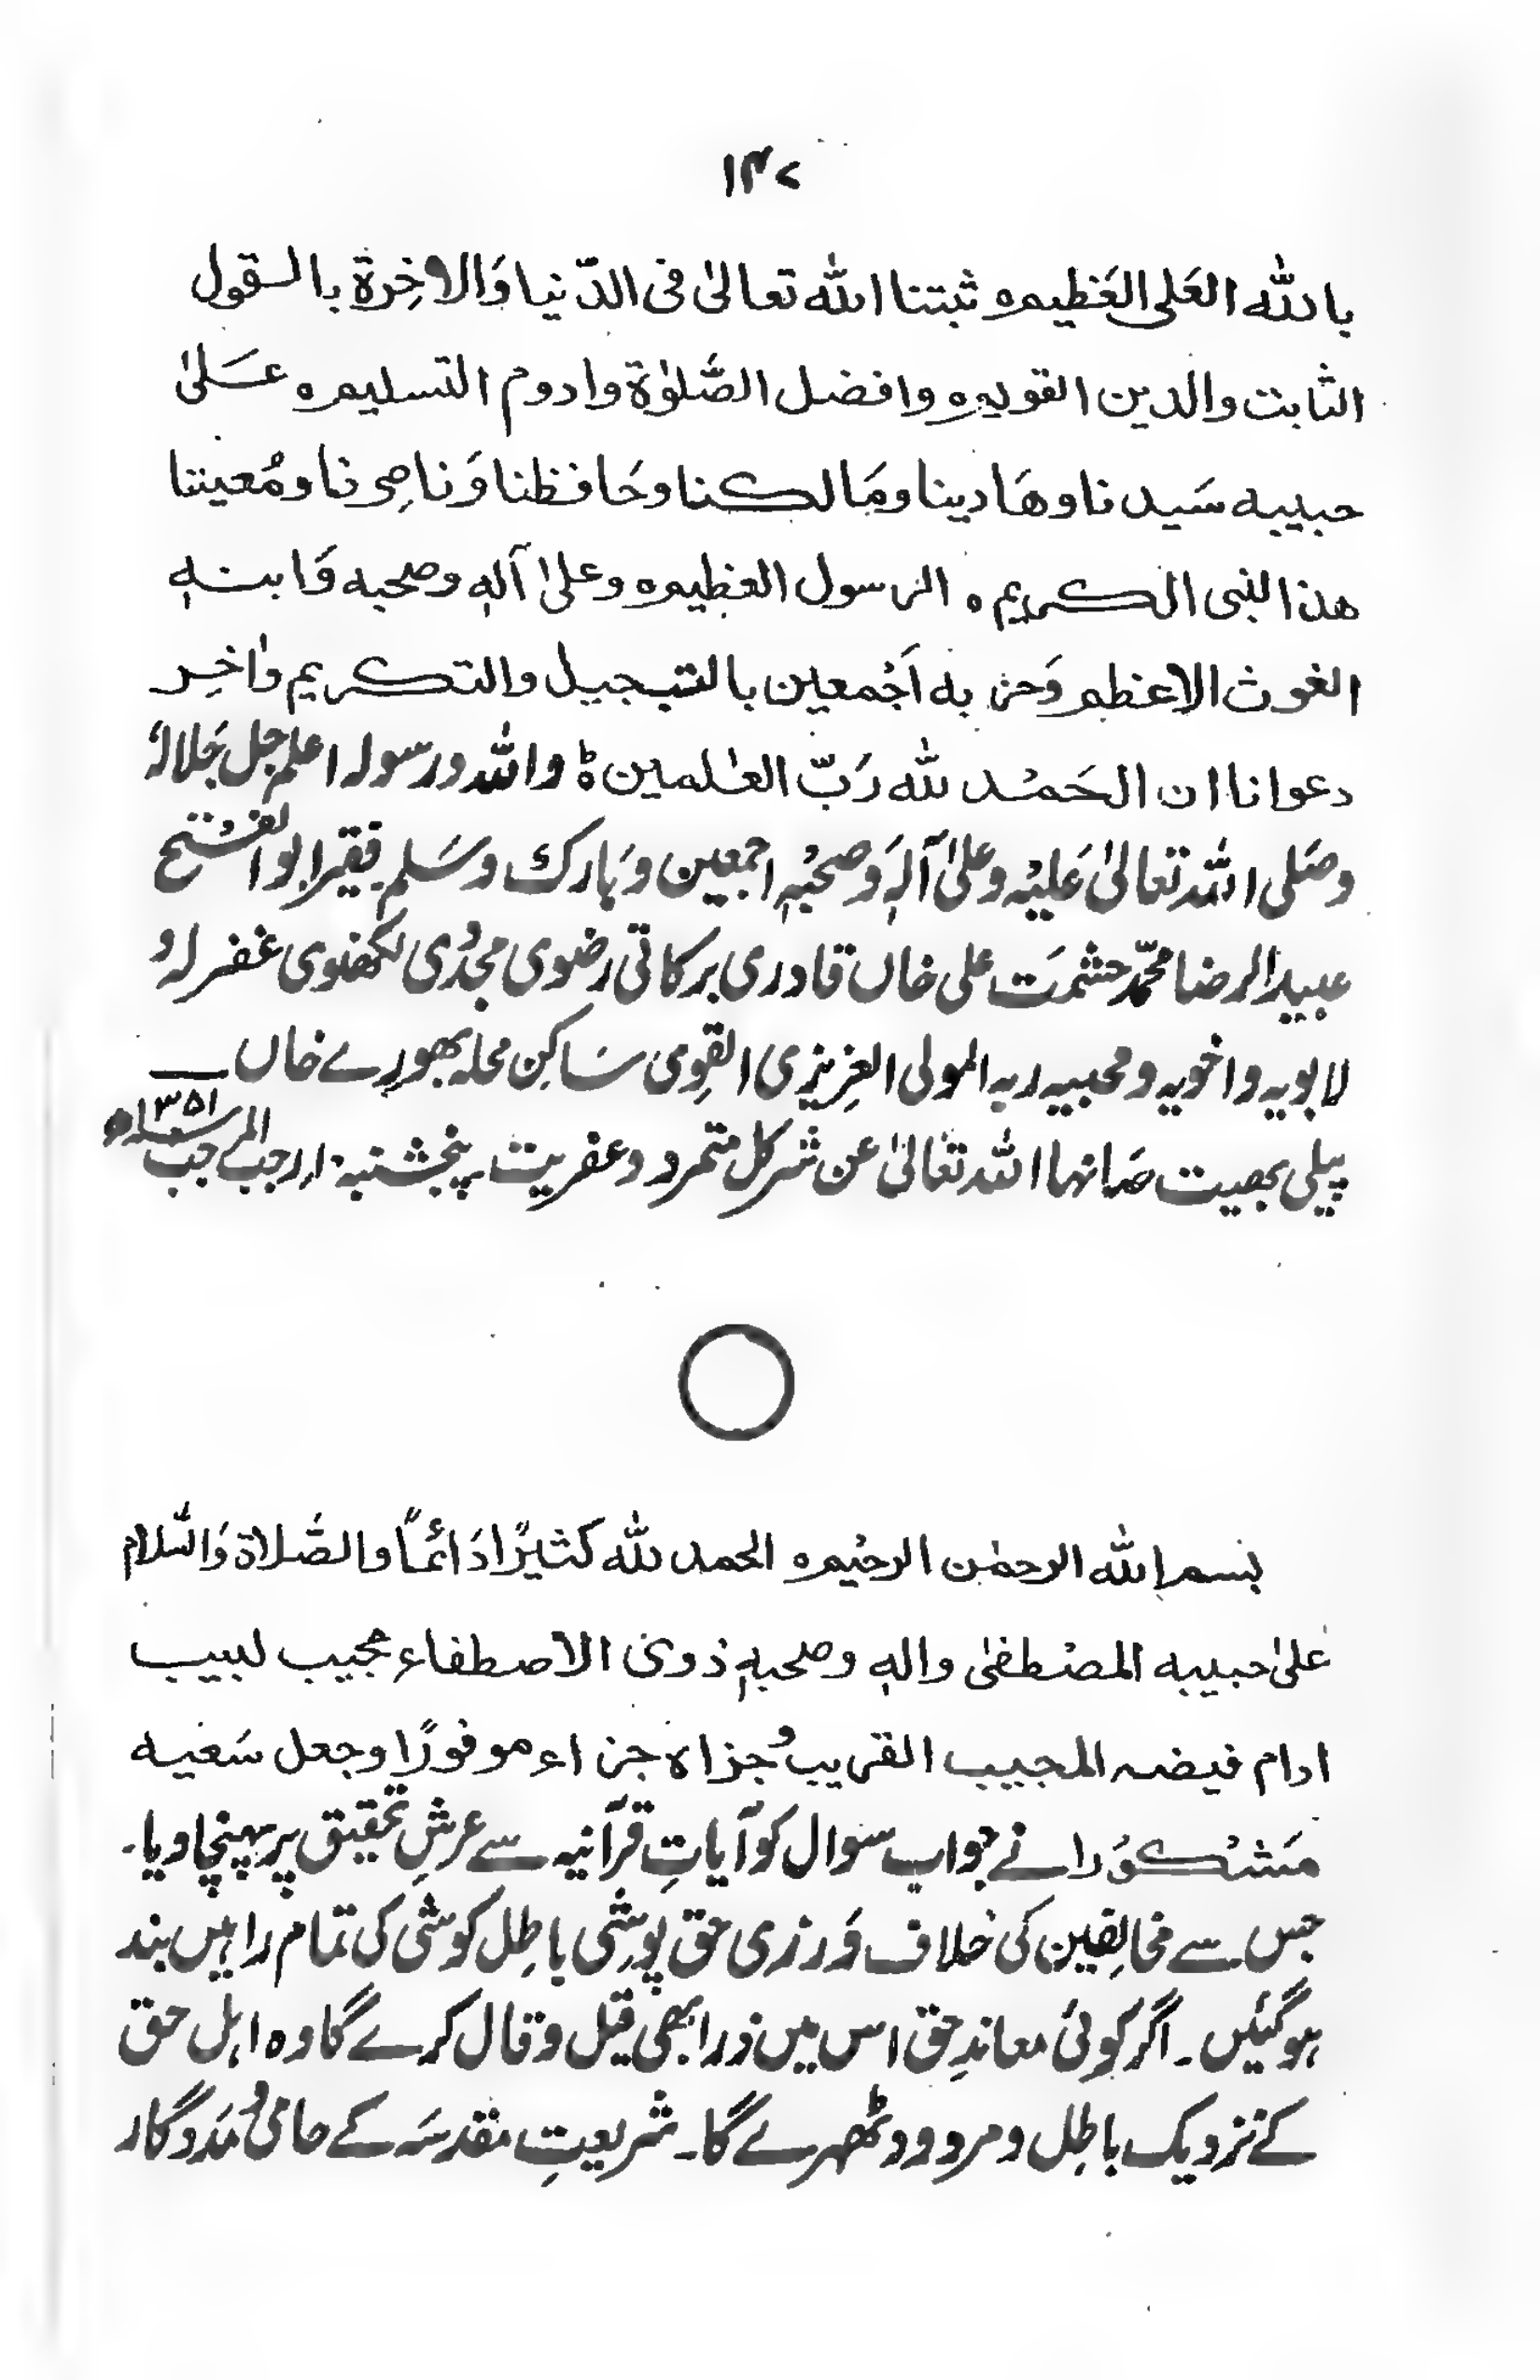 ۱۴۷
باللّٰه العَلی العَظیم٥ ثبتنا اللّٰه تعالیٰ فی الدّنیا وَالاٰخِرة بالـقول
الثابت والدین القویم٥ وافضل الصَّلوٰة وادوم التسلیم٥ عَـلیٰ
حبیبه سَیدنا وهَادینا ومَالکنا وحَافظنا وَناصِرنا ومُعیننا
هذا النبی الکریم٥ الرسول العظیم٥ وعلیٰ آلهٖ وصحبه وَابنهٖ
الغوث الاعظم وَحزبه اَجْمعین بالتبجیل والتکریم واٰخِر
دعوانا ان الحَمْد للّٰه رَبّ العٰلمین٥ واللّٰه ورسوله اعلم جل جَلالہٗ
وصَلی اللّٰہ تعالیٰ عَلیْہ وعلیٰ آلہٖ وَصحْبہٖ اجمعین وَبارک وسَلم فقیر ابو الفتْح
عبید الرضا محمّد حشمَت علی خاں قادری برکاتی رضوی مجدّدی لکھنوی غفر لہ و
لابویہ واخویہ ومحبیہ ربہ المولی العزیزی القوِی سَاکِن محلہ بھورے خاں ــــ
پیلی بھیت صَانہا اللّٰہ تعَالیٰ عن شر کل متمرد وعفریت پنجشنبہ ۱۱ رجب المرجب ۱۳۵۱ھ
بسم اللّٰه الرحمٰن الرحیْم٥ الحمد للّٰه کثیرًا دَائمًا والصَّلاة وَالسَّلام
علیٰ حبیبه المصْطفیٰ واٰلهٖ وصحبهٖ ذوی الاصطفاء مجیب لبیب
ادام فیضہ المجیب القریب وُجزاہ جزاء موفورًا وجعل سَعیه
مَشْکوَرا نے جواب سوال کو آیاتِ قرآنیہ سے عرشِ تحقیق پر پہنچا دیا۔
جس سے مخالِفین کی خلاف وَرزی حق پوشی باطِل کوشی کی تمام راہیں بند
ہو گئیں۔ اگر کوئی معاندِ حق اس میں ذرا بھی قیل وقال کرے گا وہ اہل حق
کے نزدیک باطِل و مردود ٹھہرے گا۔ شریعتِ مقدسَہ کے حامی وُ مَددگار